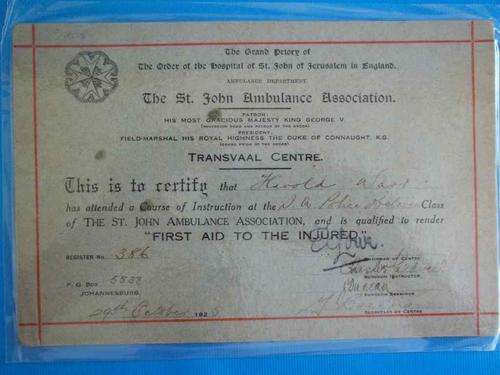 The Grand Priory of
The Order of the Hospital of St. John of Jerusalem in England.
AMBULANCE DEPARTMENT.
The St. John Ambulance Association.
PATRON:
HIS MOST GRACIOUS MAJESTY KING GEORGE V.
(SOVEREIGN HEAD AND PATRON OF THE ORDER)
PRESIDENT:
FIELD-MARSHAL HIS ROYAL HIGHNESS THE DUKE OF CONNAUGHT, K.G.
(GRAND PRIOR OF THE ORDER)
TRANSVAAL CENTRE.
This is to certify that Harold
has attended a Course of Instruction at the S.A. Police Class
of THE ST. JOHN AMBULANCE ASSOCIATION, and is qualified to render
"FIRST AID TO THE INJURED."
REGISTER NO. 386
CHAIRMAN OF CENTRE
SURGEON INSTRUCTOR
P.O. BOX
JOHANNESBURG.
SURGEON EXAMINER
29th October 192
SECRETARY OF CENTRE